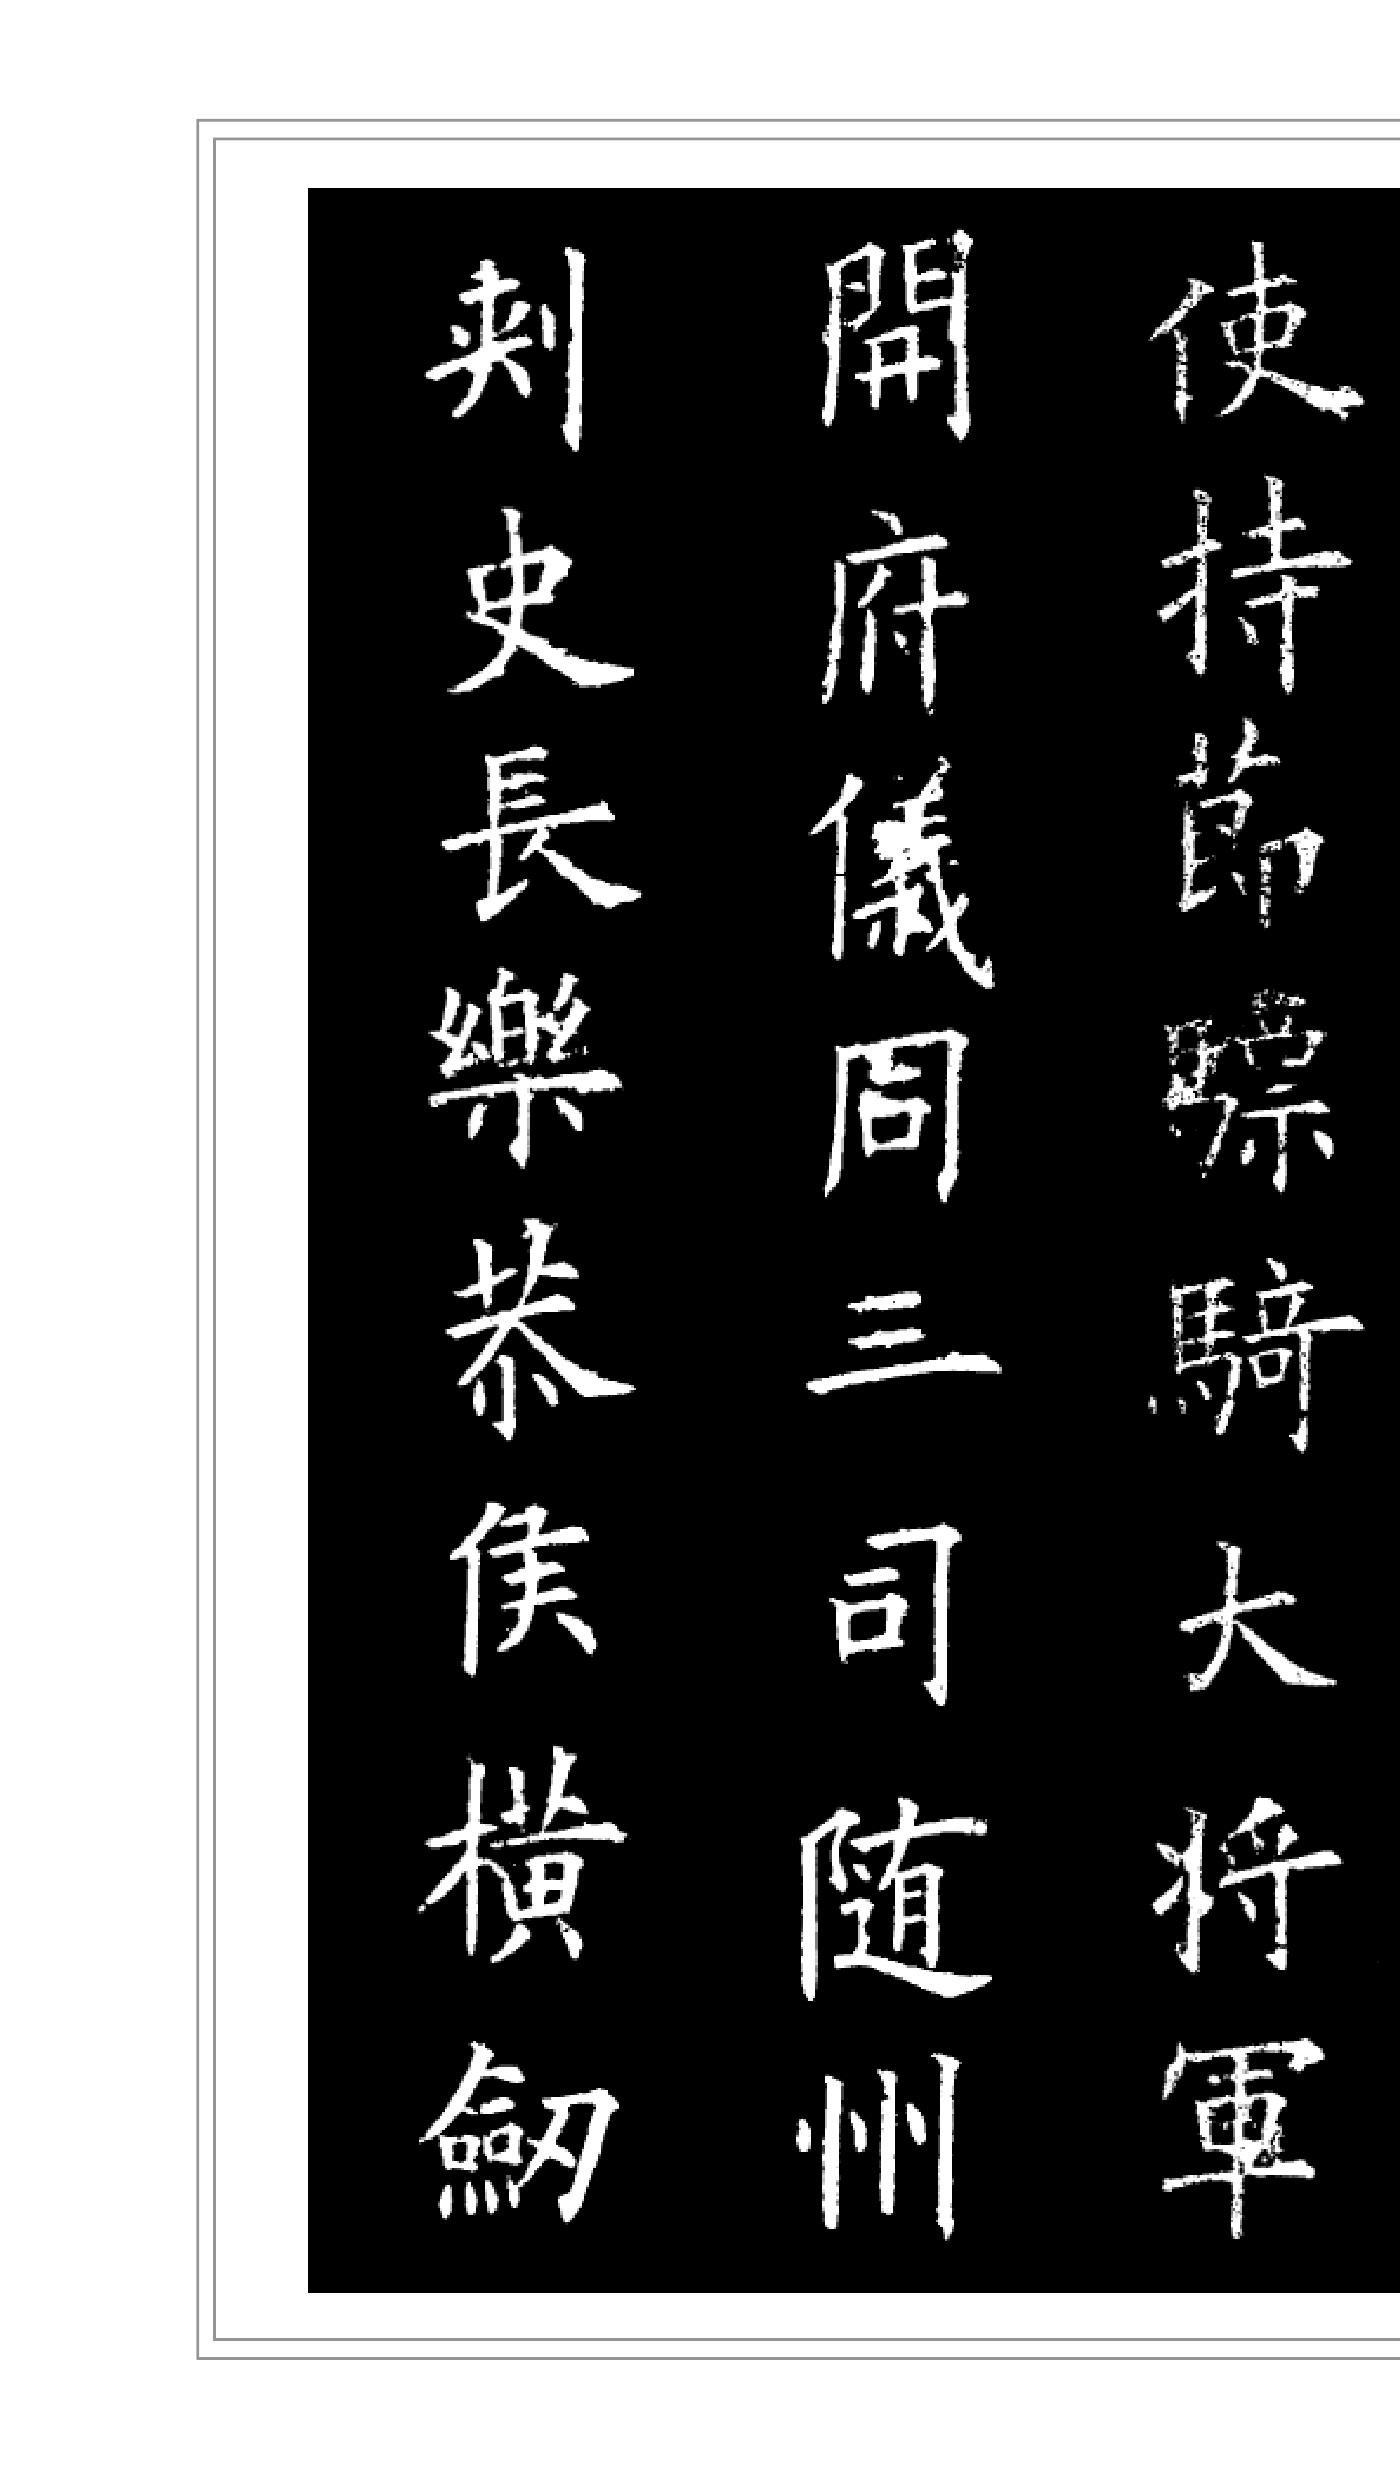 使持節驃騎大將軍
開府儀同三司随州
刺史長樂恭侯橫
劒